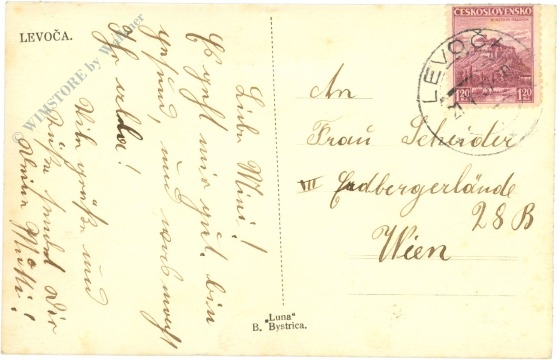 LEVOČA.
WIMSTORE by Wimmer
Liebe Mimi!
Es geht mir gut, bin
gesund, und was machst
Ihr alle!
Viele Grüße und
Küße sendet Dir
Deine Mutti!
ČESKOSLOVENSKO
1.20 1.20
LEVOČA
An
Frau Scheider
VII Erdbergerlände
28 B
Wien
„Luna“
B. Bystrica.